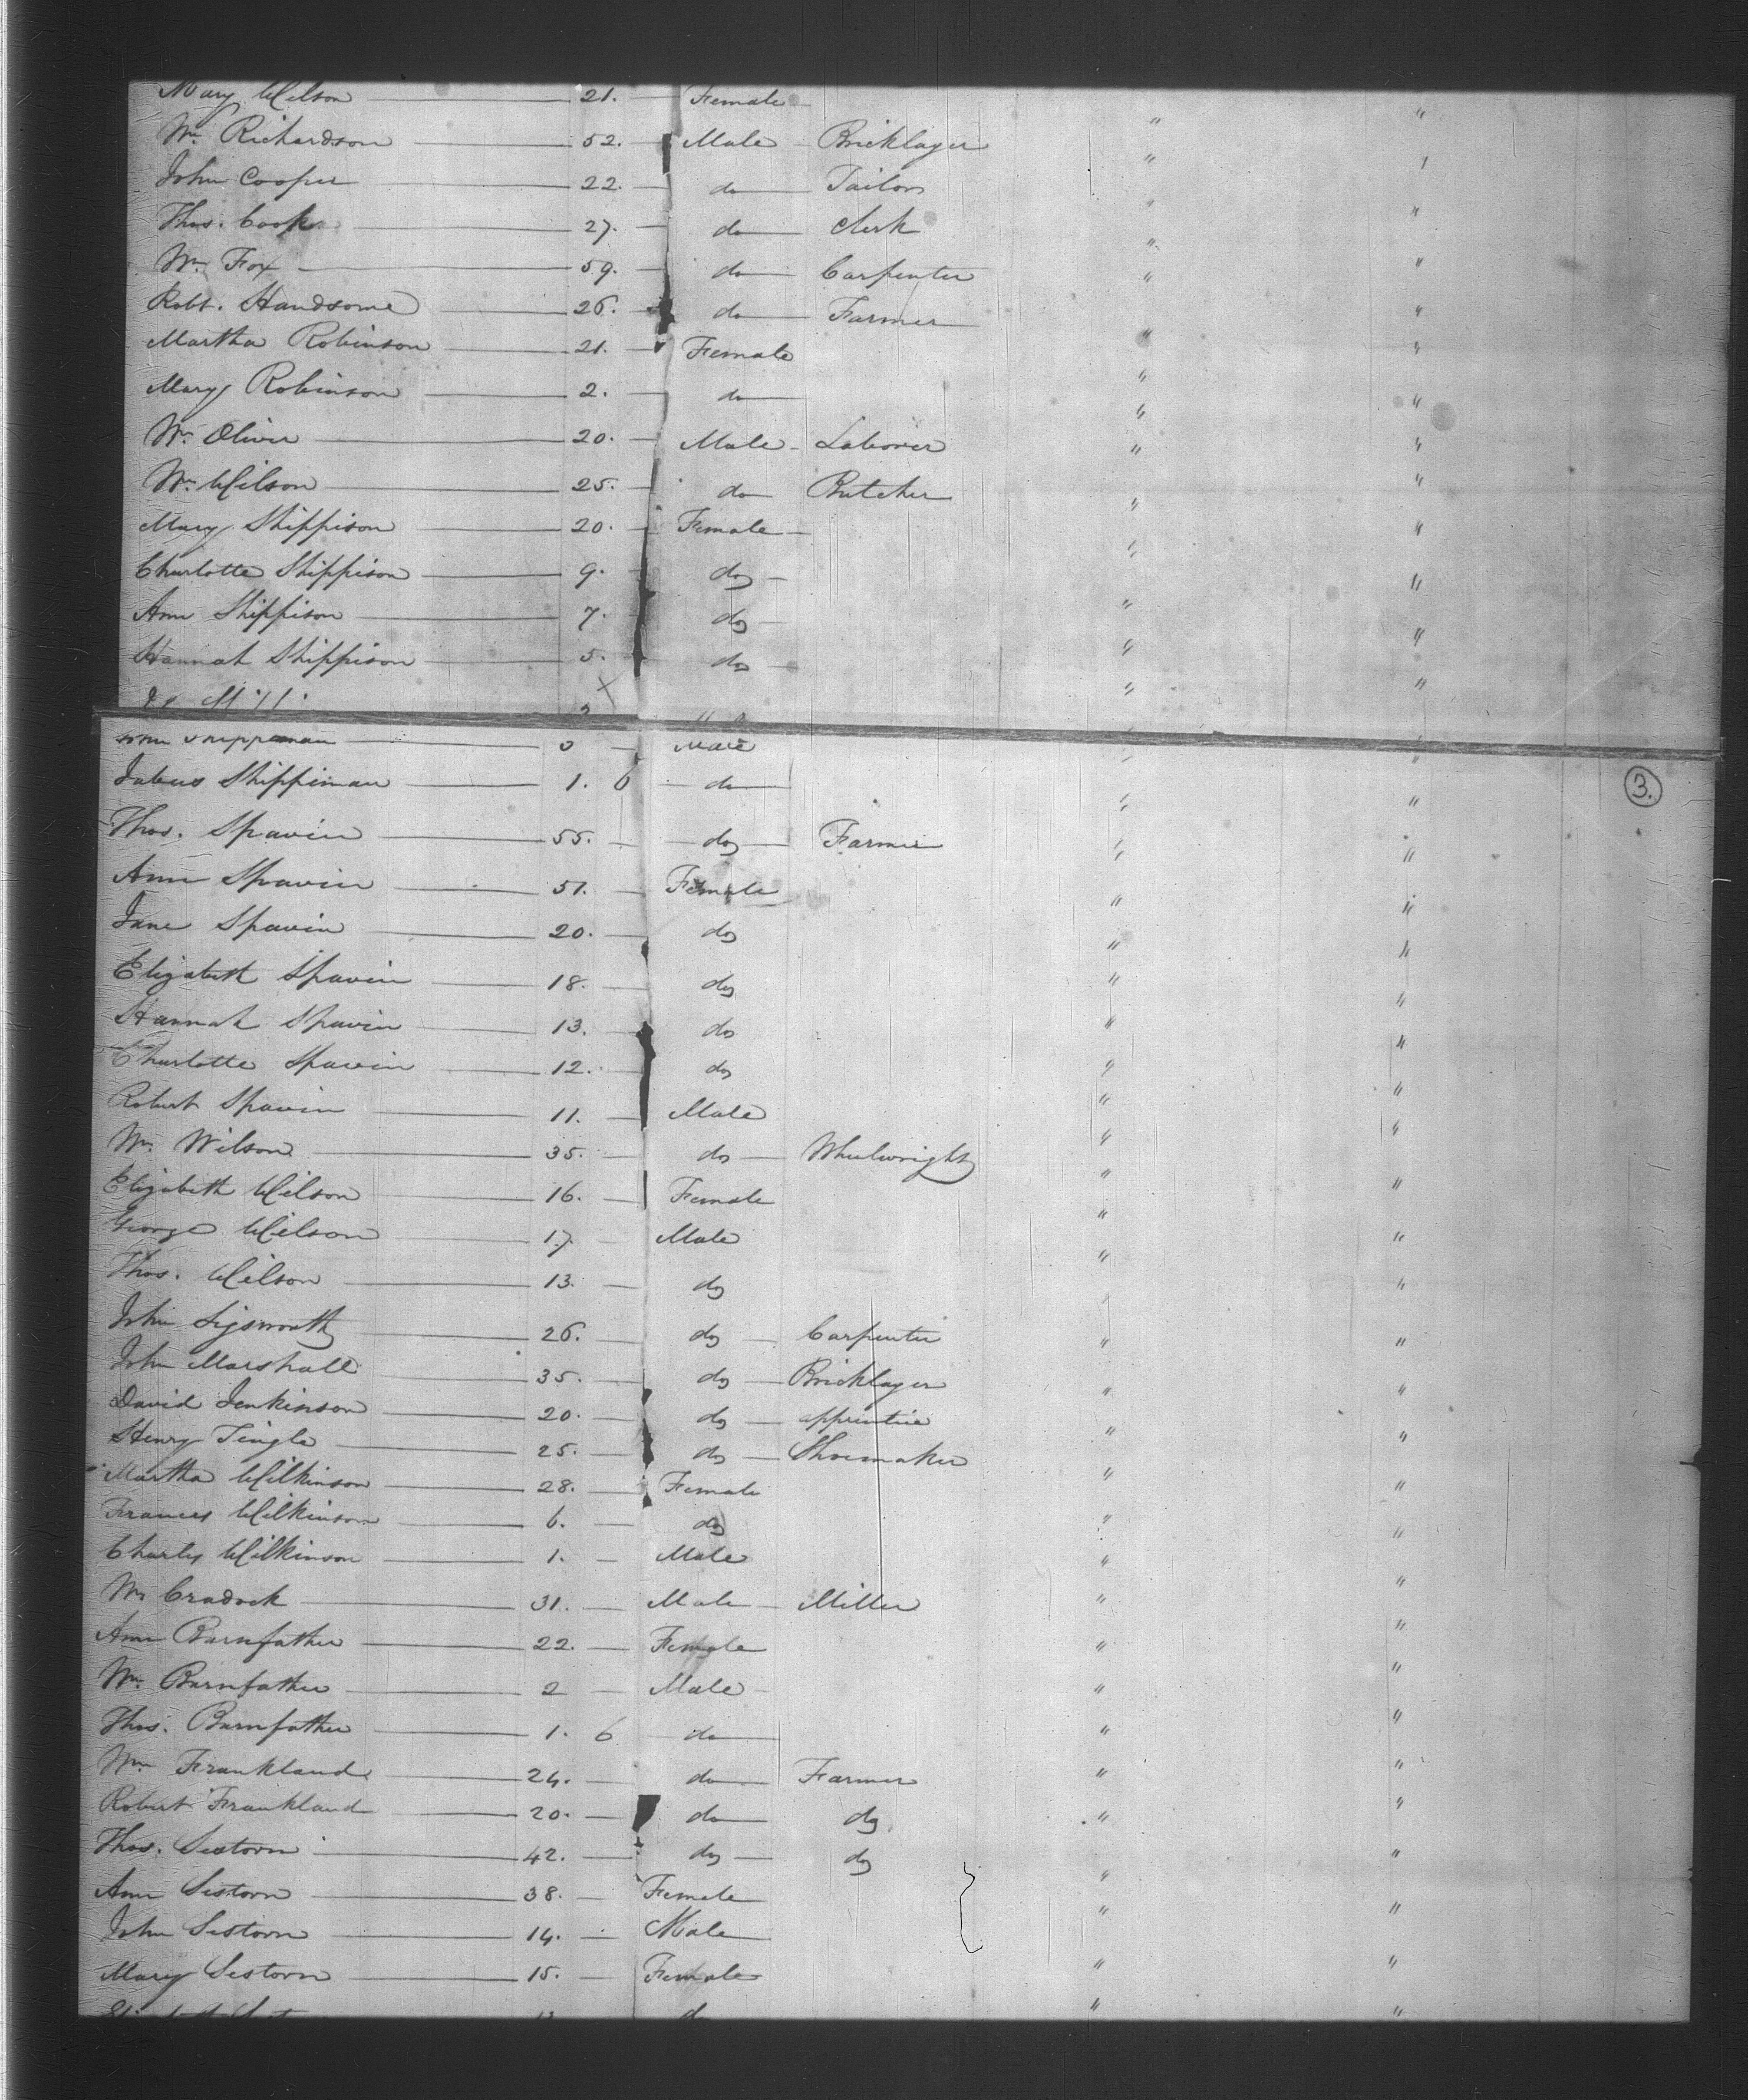 Mary Wilson 21. Female " "
Wm. Richardson 52. Male Bricklayer " "
John Cooper 22. do Tailor " "
Thos. Cook 27. do Clerk " "
Wm. Fox 59. do Carpenter " "
Robt. Handsome 26. do Farmer " "
Martha Robinson 21. Female " "
Mary Robinson 2. do " "
Wm. Oliver 20. Male Laborer " "
Wm. Wilson 25. do Butcher " "
Mary Shippison 20. Female " "
Charlotte Shippison 9. do " "
Ann Shippison 7. do " "
Hannah Shippison 5. do " "
John Male " "
Shippiman 1. 6 do " "
3.
Thos. Spavin 55. do Farmer " "
Ann Spavin 51. Female " "
Jane Spavin 20. do " "
Elizabeth Spavin 18. do " "
Hannah Spavin 13. do " "
Charlotte Spavin 12. do " "
Robert Spavin 11. Male " "
Wm. Wilson 35. do Wheelwright " "
Elizabeth Wilson 16. Female " "
George Wilson 17. Male " "
Thos. Wilson 13. do " "
John Sigsworth 26. do Carpenter " "
John Marshall 35. do Bricklayer " "
David Jenkinson 20. do apprentice " "
Henry Tingle 25. do Shoemaker " "
Martha Wilkinson 28. Female " "
Frances Wilkinson 6. do " "
Charles Wilkinson 1. Male " "
Wm Cradock 31. Male Miller " "
Ann Barnfather 22. Female " "
Wm. Barnfather 2 Male " "
Thos. Barnfather 1. 6 do " "
Wm Frankland 24. do Farmer " "
Robert Frankland 20. do do " "
Thos. Sistorn 42. do do " "
Ann Sistorn 38. Female " "
John Sistorn 14. Male " "
Mary Sistorn 15. Female " "